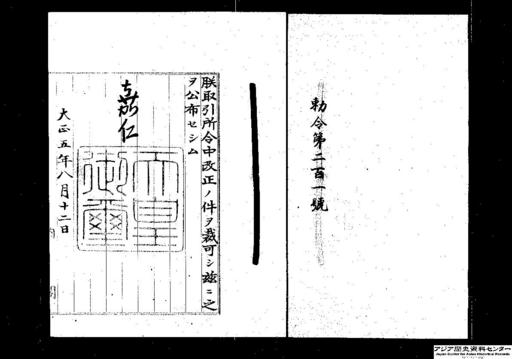 勅令第二百一號
朕取引所令中改正ノ件ヲ裁可シ茲ニ之
ヲ公布セシム
嘉仁
天皇
御璽
大正五年八月十二日
アジア歴史資料センター
Japan Center for Asian Historical Records